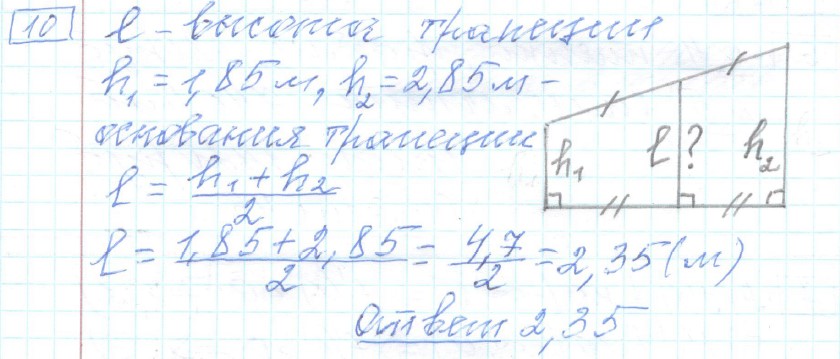 10 l - высота трапеции
h₁ = 1,85 м, h₂ = 2,85 м -
основания трапеции
l = (h₁ + h₂)/2
l = (1,85 + 2,85)/2 = 4,7/2 = 2,35 (м)
Ответ 2,35
h₁ l ? h₂